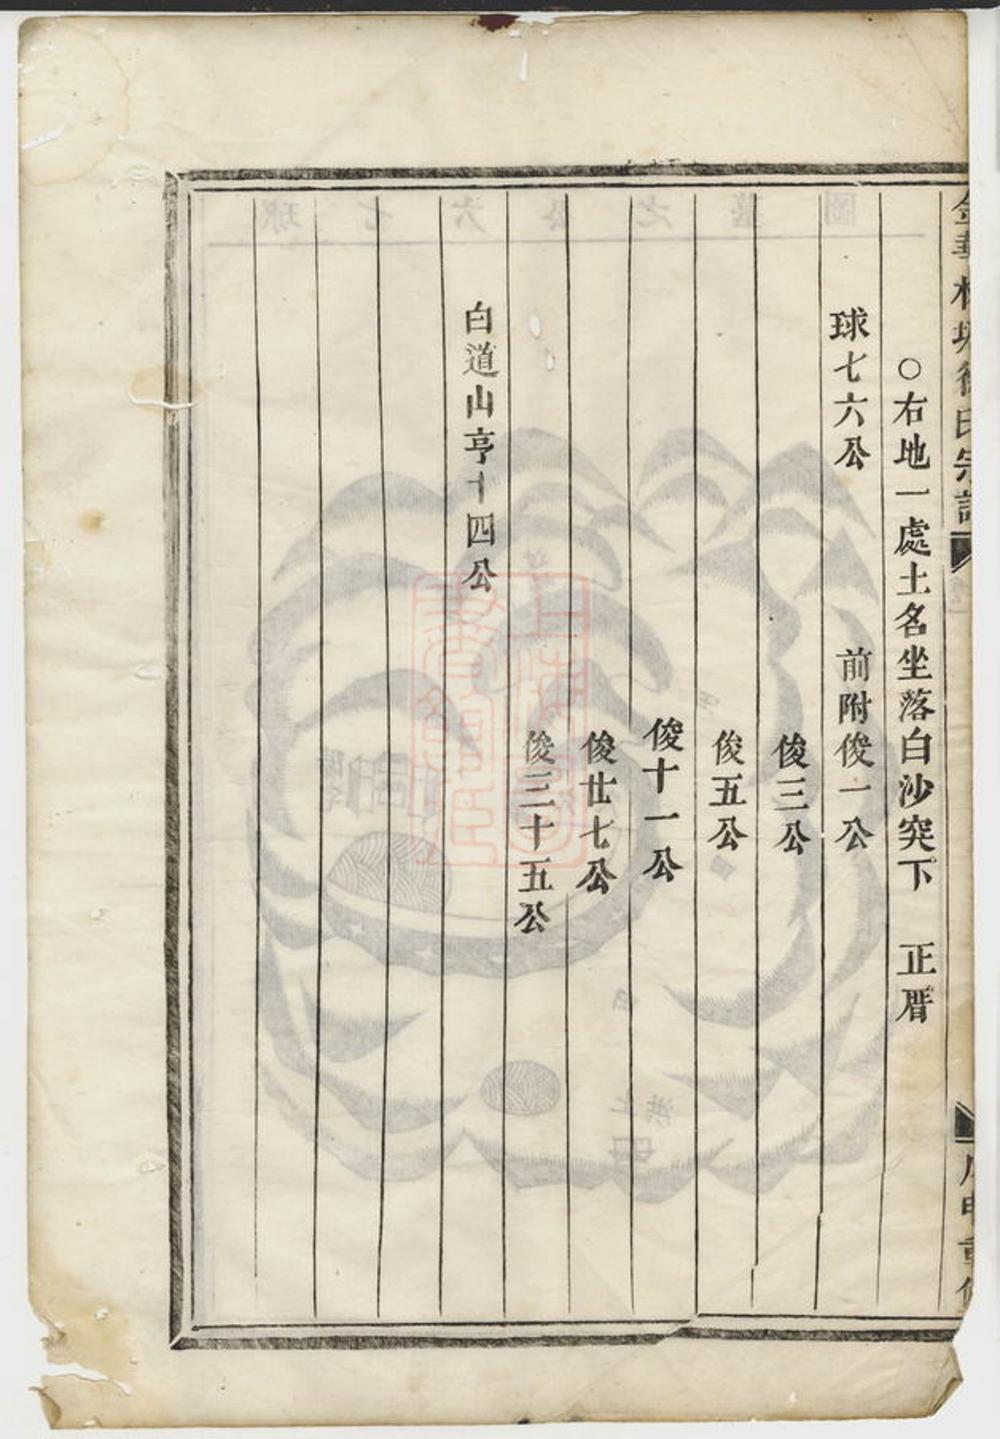 ○右地一處土名坐落白沙突下　正厝
球七六公　前附俊一公
俊三公
俊五公
俊十一公
俊廿七公
俊三十五公
白道山亨十四公
圖墓之公六七球